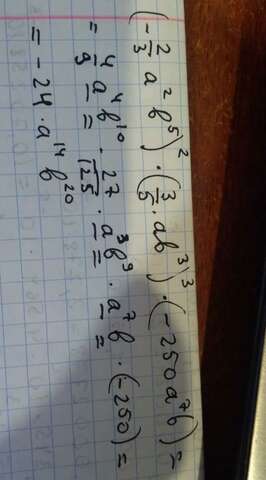 (-2/3 a² b⁵)² · (3/5 · ab³)³ · (-250a⁷b) =
= 4/9 a⁴b¹⁰ · 27/125 · a³b⁹ · a⁷b · (-250) =
= -24 · a¹⁴b²⁰